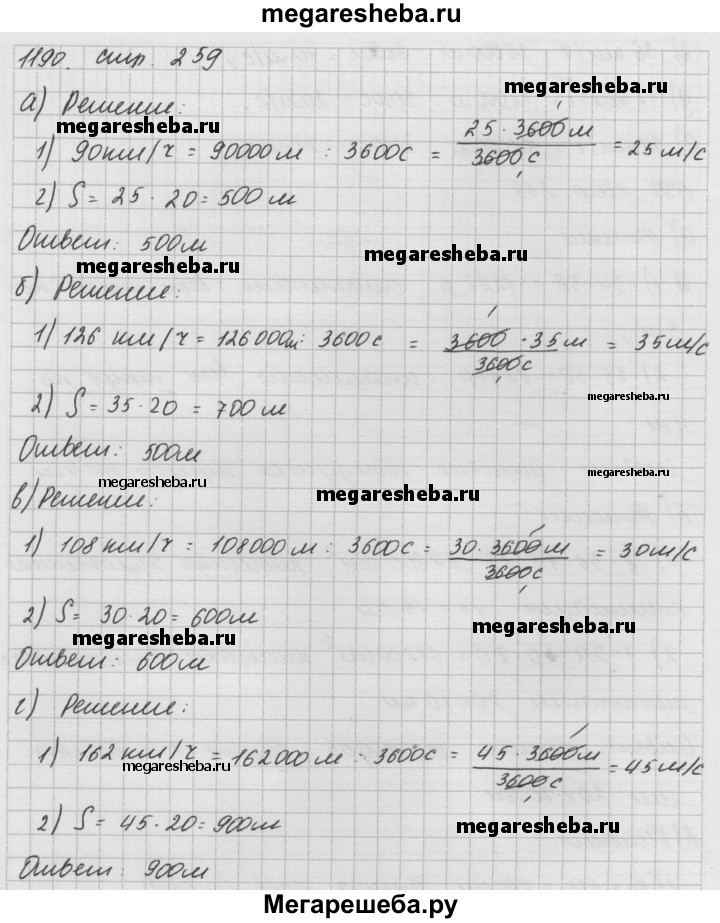 megaresheba.ru
1190. стр. 259
megaresheba.ru
а) Решение:
megaresheba.ru
1) 90км/ч = 90000м : 3600с = 25 · 3600м / 3600с = 25 м/с
2) S = 25 · 20 = 500 м
Ответ: 500м
megaresheba.ru
megaresheba.ru
б) Решение:
1) 126 км/ч = 126000м : 3600с = 3600 · 35м / 3600с = 35м/с
megaresheba.ru
2) S = 35 · 20 = 700м
Ответ: 500м
megaresheba.ru
megaresheba.ru
megaresheba.ru
в) Решение:
1) 108км/ч = 108000м : 3600с = 30 · 3600м / 3600с = 30м/с
2) S = 30 · 20 = 600м
megaresheba.ru
megaresheba.ru
Ответ: 600м
г) Решение:
1) 162км/ч = 162000м : 3600с = 45 · 3600м / 3600с = 45м/с
megaresheba.ru
2) S = 45 · 20 = 900м
megaresheba.ru
Ответ: 900м
Мегарешеба.ру